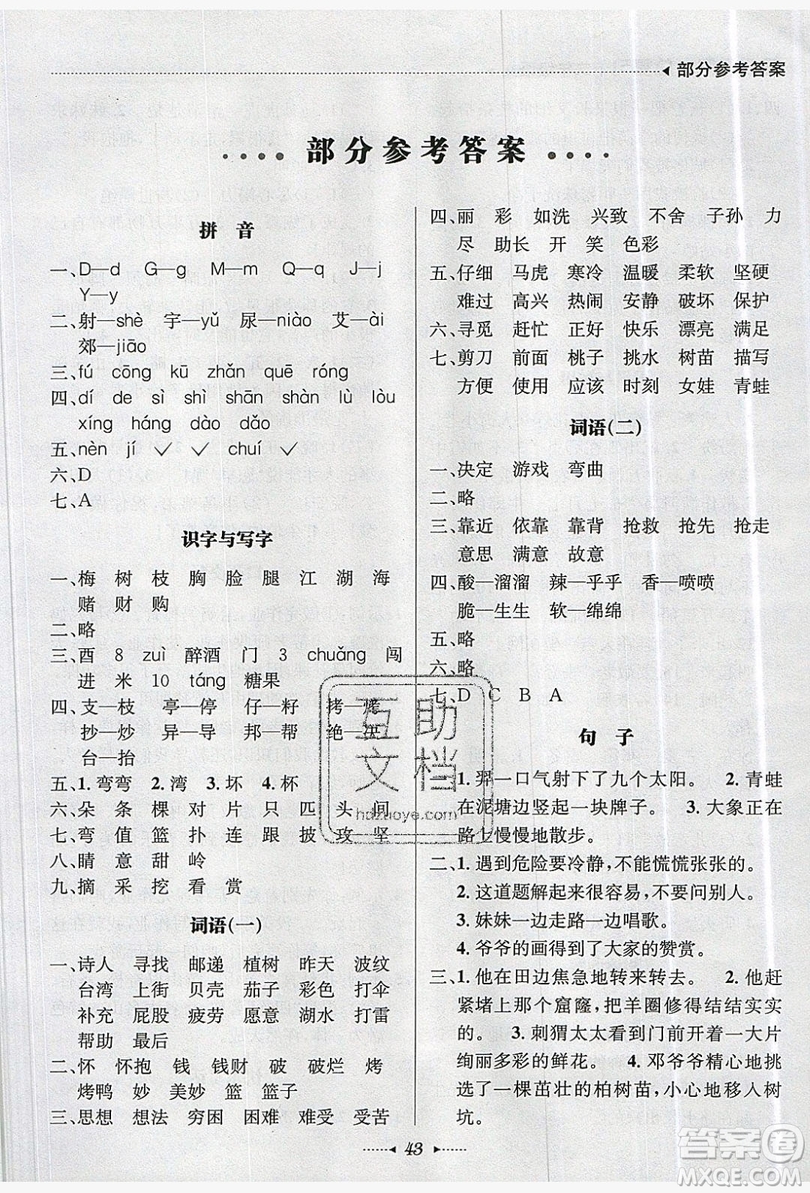 部分参考答案
部分参考答案
拼 音
一、D—d G—g M—m Q—q J—j
Y—y
二、射—shè 宇—yǔ 尿—niào 艾—ài
郊—jiāo
三、fú cōng kū zhǎn quē róng
四、dí de sì shì shān shàn lù lòu
xíng háng dào dǎo
五、nèn jí ✓ chuí ✓
六、D
七、A
识字与写字
一、梅 树 枝 胸 脸 腿 江 湖 海
赌 财 购
二、略
三、酉 8 zuì 醉酒 门 3 chuǎng 闯
进 米 10 táng 糖果
四、支—枝 亭—停 仔—籽 拷—烤
抄—炒 异—导 邦—帮 绝—决
台—抬
五、1.弯弯 2.湾 3.坏 4.杯
六、朵 条 棵 对 片 只 匹 头 间
七、弯 值 篮 扑 连 跟 披 攻 坚
八、睛 意 甜 岭
九、摘 采 挖 看 赏
词语(一)
一、诗人 寻找 邮递 植树 昨天 波纹
台湾 上街 贝壳 茄子 彩色 打伞
补充 屁股 疲劳 愿意 湖水 打雷
帮助 最后
二、怀 怀抱 钱 钱财 破 破烂 烤
烤鸭 妙 美妙 篮 篮子
三、思想 想法 穷困 困难 难受 受苦
四、丽 彩 如洗 兴致 不舍 子孙 力
尽 助长 开 笑 色彩
五、仔细 马虎 寒冷 温暖 柔软 坚硬
难过 高兴 热闹 安静 破坏 保护
六、寻觅 赶忙 正好 快乐 漂亮 满足
七、剪刀 前面 桃子 挑水 树苗 描写
方便 使用 应该 时刻 女娃 青蛙
词语(二)
一、决定 游戏 弯曲
二、略
三、靠近 依靠 靠背 抢救 抢先 抢走
意思 满意 故意
四、酸—溜溜 辣—乎乎 香—喷喷
脆—生生 软—绵绵
五、略
六、略
七、D C B A
句 子
一、1. 羿一口气射下了九个太阳。 2. 青蛙
在泥塘边竖起一块牌子。 3. 大象正在
路上慢慢地散步。
二、1. 遇到危险要冷静,不能慌慌张张的。
2. 这道题解起来很容易,不要问别人。
3. 妹妹一边走路一边唱歌。
4. 爷爷的画得到了大家的赞赏。
三、1. 他在田边焦急地转来转去。 2. 他赶
紧堵上那个窟窿,把羊圈修得结结实实
的。 3. 刺猬太太看到门前开着一大片
绚丽多彩的鲜花。 4. 邓爷爷精心地挑
选了一棵茁壮的柏树苗,小心地移入树
坑。
43
互助
文档
hdzuoye.com
答案圈
MXQE.COM